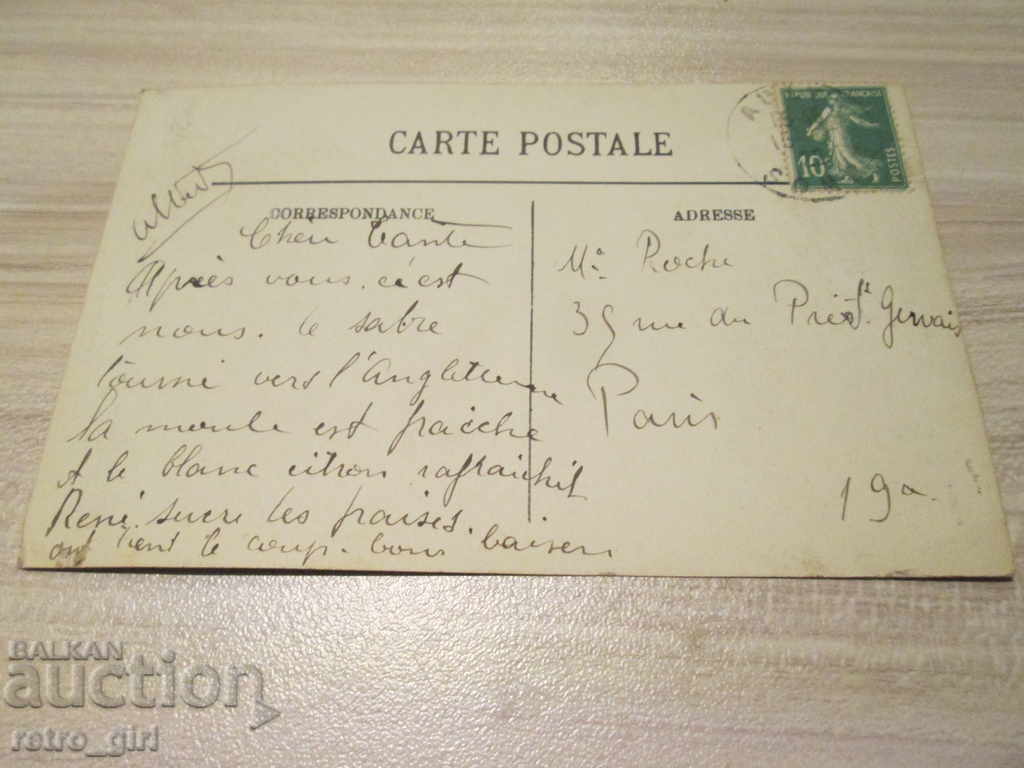 CARTE POSTALE
CORRESPONDANCE
ADRESSE
REPUBLIQUE FRANÇAISE
10c
POSTES
Albert
Cher Tante
Après vous. c'est
nous. le sabre
tourné vers l'Angleterre
la moule est fraiche
le blanc citron rafraichit
René. sucre les fraises.
on tient le coup. bons baisers
Mr Roche
35 rue du Pré St. Gervais
Paris
19e
BALKAN
auction
retro_girl